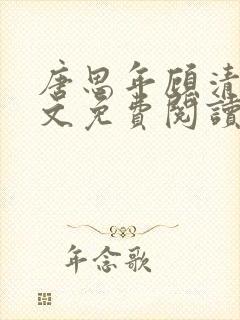 唐思年顾清
文免費閱讀
年念歌